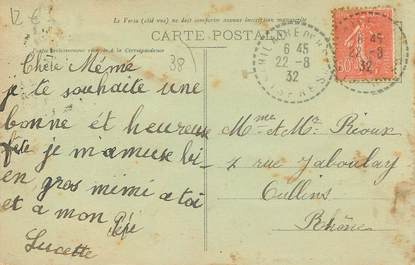 12 €
Le Verso (côté vue) ne doit comporter aucune inscription manuscrite
CARTE POSTALE
exclusivement réservée à la Correspondance
38
6 45
22 - 8
32
ISÈRE
45
22 - 8
32
Chère Mémé
je te souhaite une
bonne et heureuse
fête je m'amuse bi-
en gros mimi a toi
et a mon Pépé
Lucette
Mme et Mr Rioux
4 rue Jaboulay
Oullins
Rhône